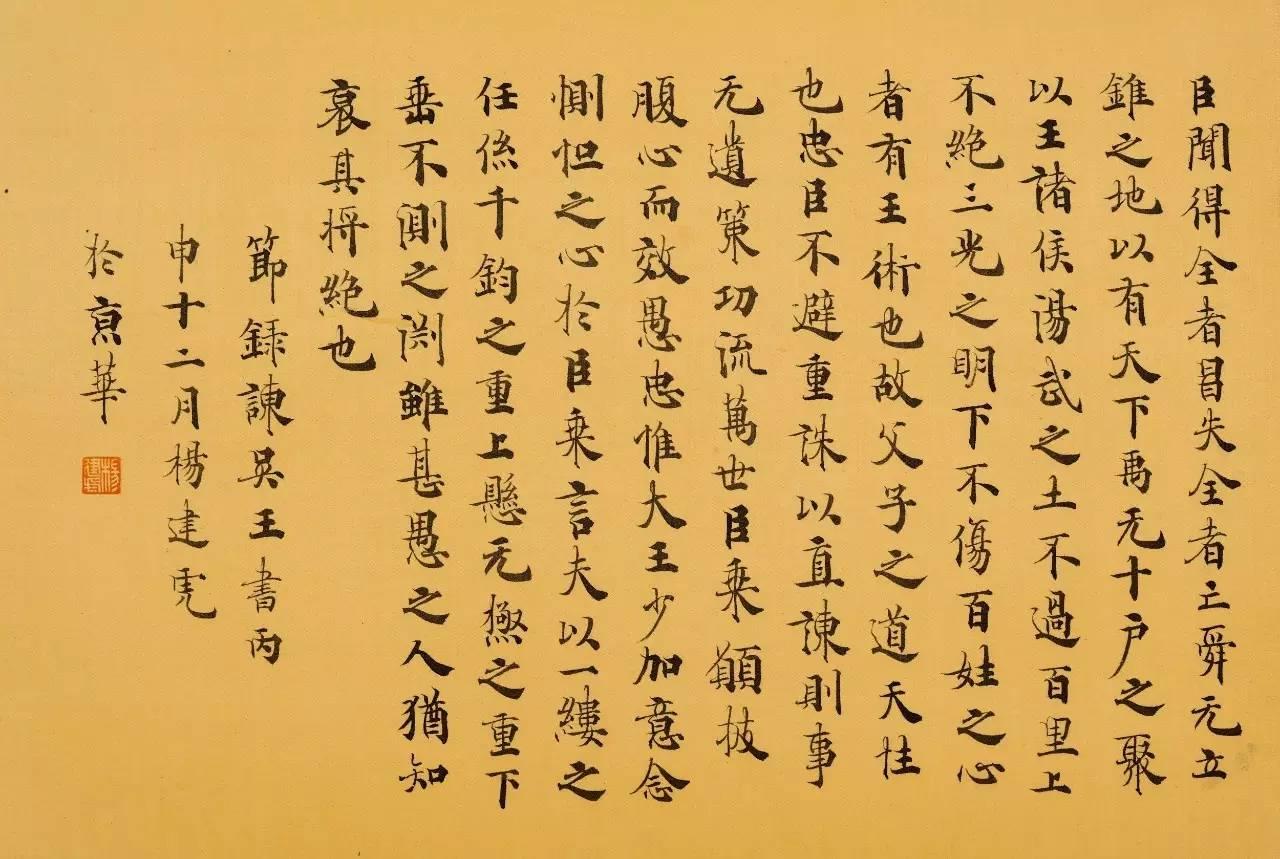 臣聞得全者昌失全者亡舜无立
錐之地以有天下禹无十户之聚
以王諸侯湯武之土不過百里上
不絶三光之明下不傷百姓之心
者有王術也故父子之道天性
也忠臣不避重誅以直諫則事
无遺策功流萬世臣乗願披
腹心而效愚忠惟大王少加意念
惻怛之心於臣乗言夫以一縷之
任係千鈞之重上懸无極之重下
垂不測之渊雖甚愚之人猶知
哀其将絶也
節録諫吳王書丙
申十二月楊建虎
於京華